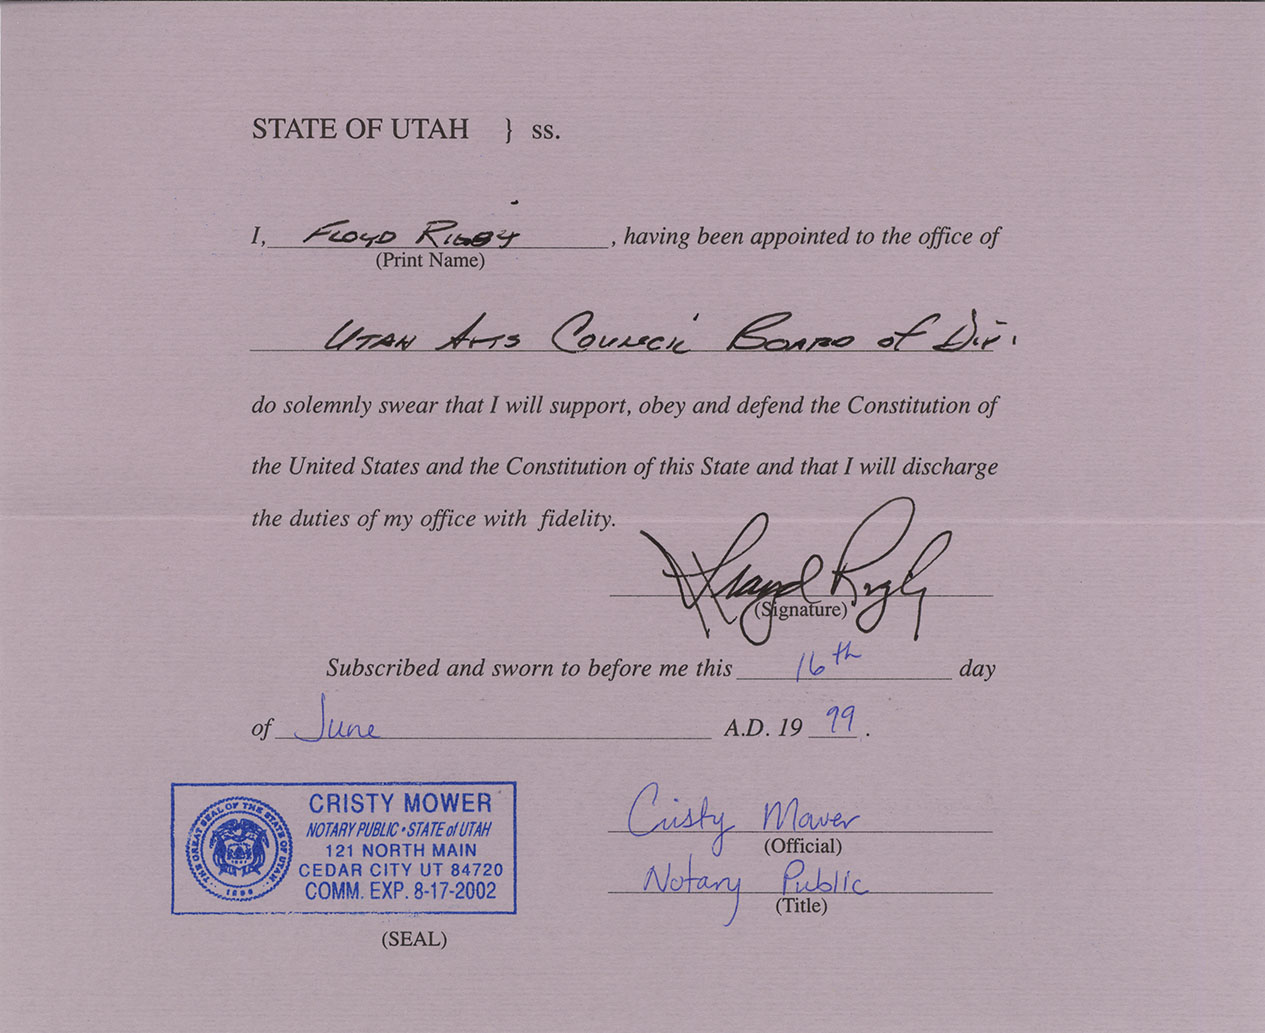 STATE OF UTAH } ss.
I, FLOYD RIGBY, having been appointed to the office of
(Print Name)
UTAH ARTS COUNCIL BOARD of Dir.
do solemnly swear that I will support, obey and defend the Constitution of
the United States and the Constitution of this State and that I will discharge
the duties of my office with fidelity.
Floyd Rigby
(Signature)
Subscribed and sworn to before me this 16th day
of June A.D. 19 99.
CRISTY MOWER
NOTARY PUBLIC • STATE of UTAH
121 NORTH MAIN
CEDAR CITY UT 84720
COMM. EXP. 8-17-2002
THE GREAT SEAL OF THE STATE OF UTAH
1896
(SEAL)
Cristy Mower
(Official)
Notary Public
(Title)